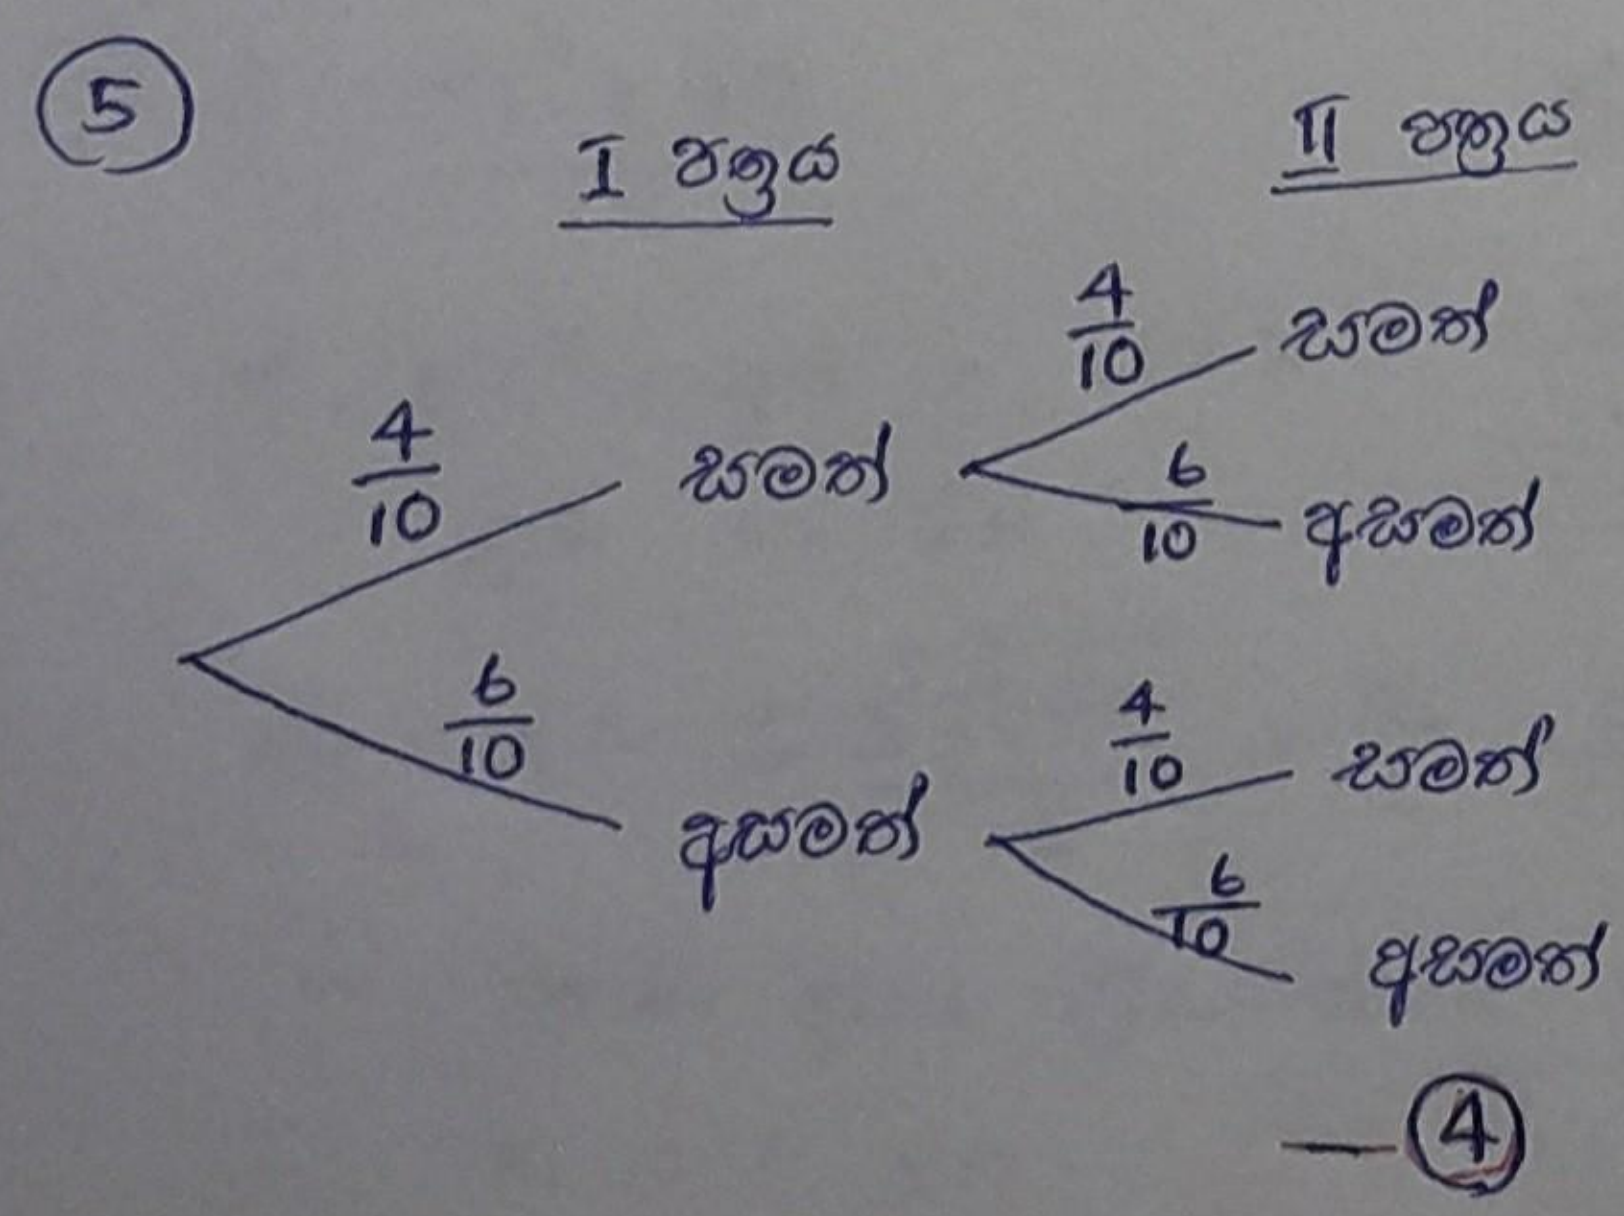 5
I පත්‍රය
II පත්‍රය
4/10
සමත්
4/10
සමත්
6/10
අසමත්
6/10
අසමත්
4/10
සමත්
6/10
අසමත්
— 4